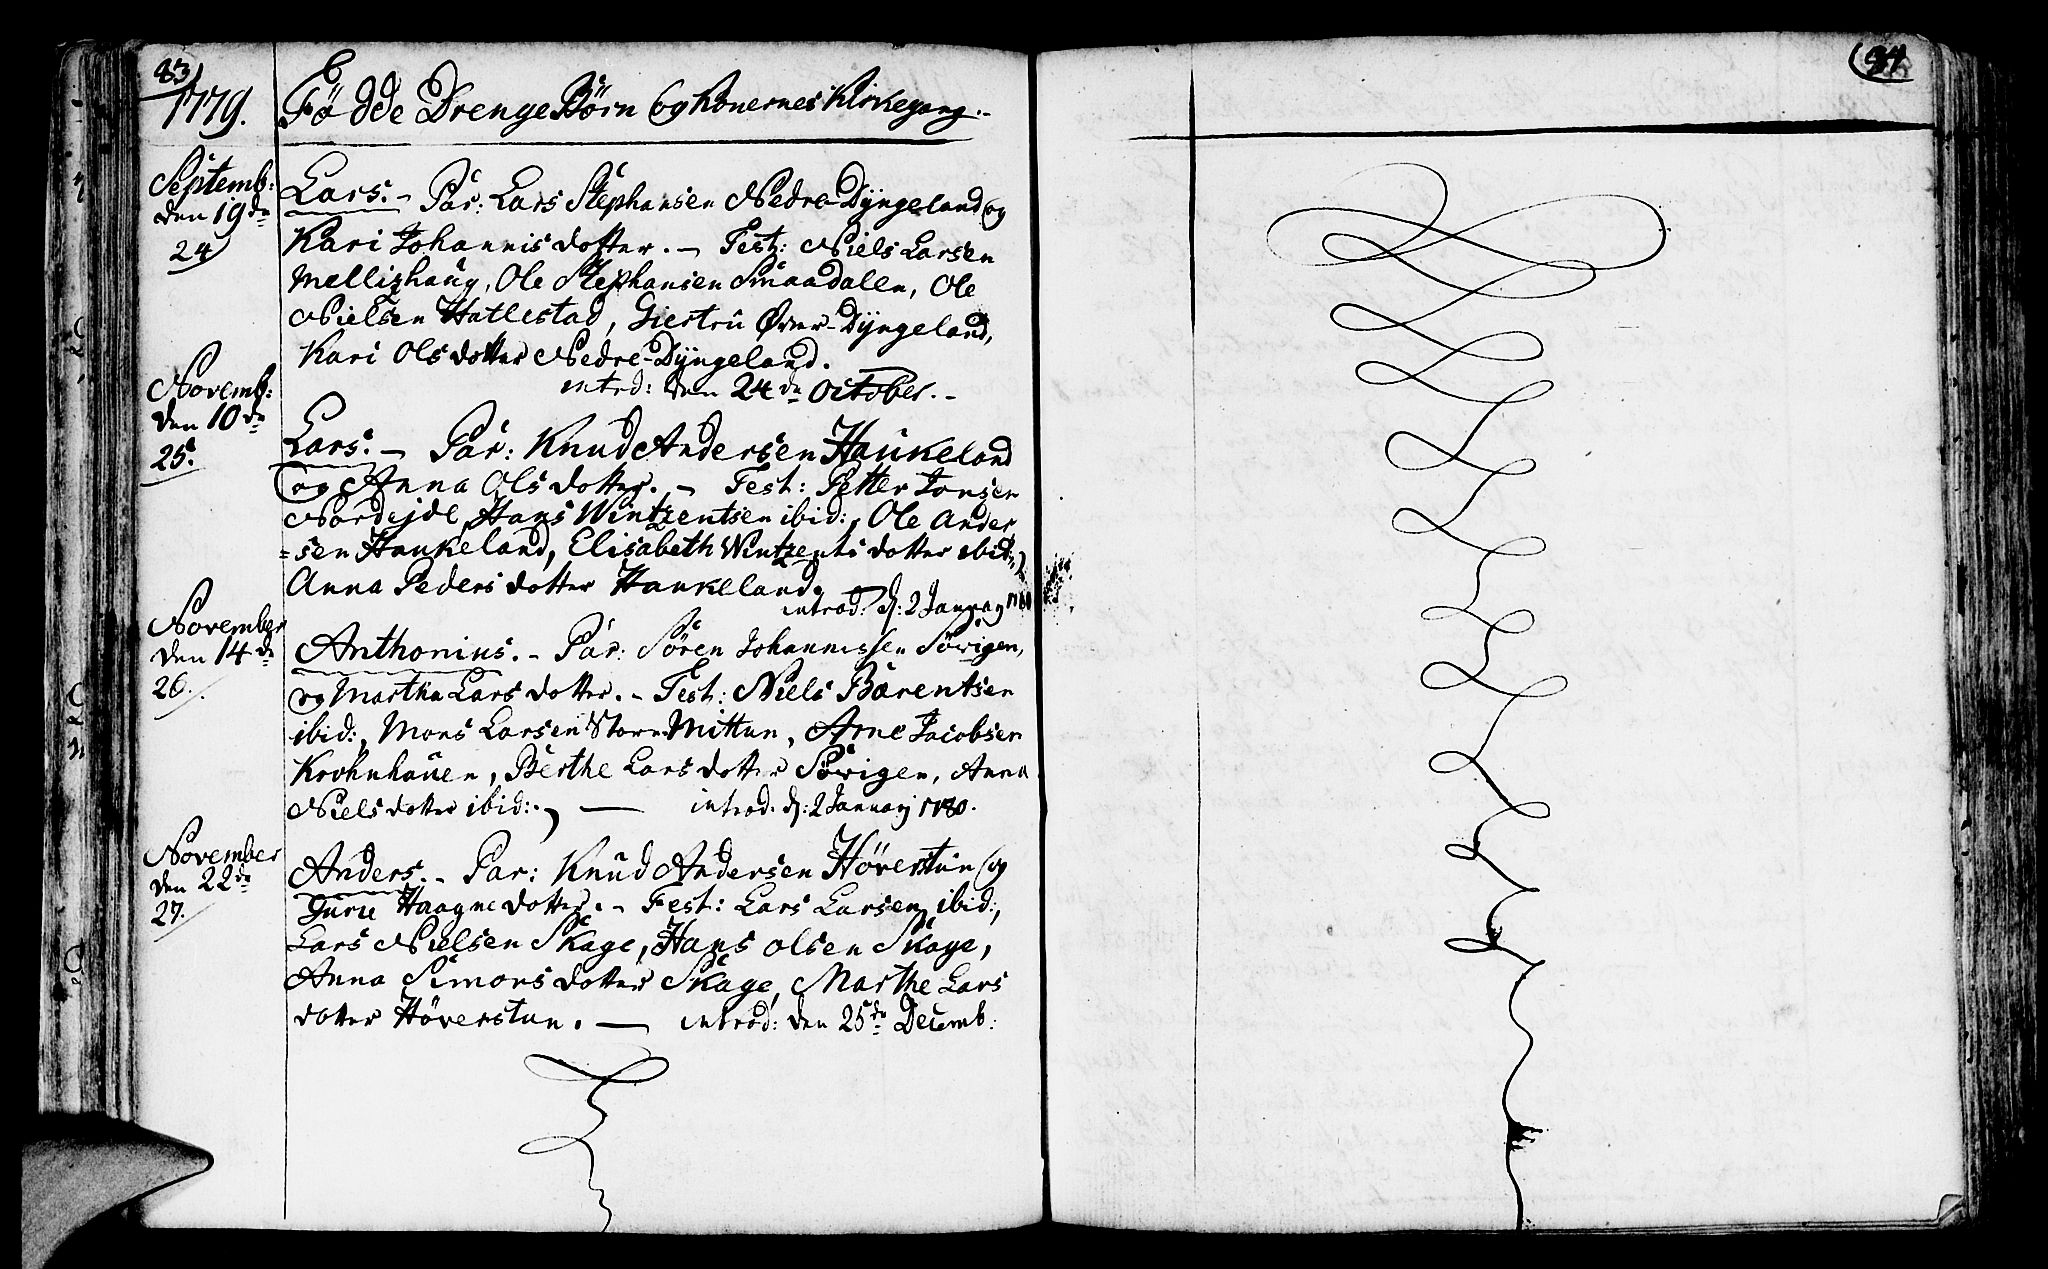 83)
1779. Fødde DrengeBørn og Konernes Kirkegang.
Septemb:
den 19de
24
Lars. - Par: Lars Stephansen Nedre-Dyngeland og
Kari Johannis dotter. - Test: Niels Larsen
Mellishaug, Ole Stephansen Smaadalen, Ole
Nielsen Hatlestad, Giertru Øvre-Dyngeland,
Kari Ols dotter Nedre-Dyngeland.
introd: den 24de October. -
Novemb:
den 10de
25.
Lars. - Par: Knud Andersen Haukeland
og Anna Ols dotter. - Test: Petter Jonsen
Hans Wintzentsen ibid:, Ole Ander
=sen Haukeland, Elisabeth Wintzents dotter ibid:,
Anna Peders dotter Haukeland.
introd: d: 2 January 1780
November
den 14de
26.
Anthonius. - Par: Søren Johannissen Sørvigen,
og Martha Lars dotter. - Test: Niels Bærentsen
ibid:, Mons Larsen Store-Mittun, Arne Jacobsen
Krohnhauen, Berthe Lars dotter Sørvigen, Anna
Niels dotter ibid:. - introd. d: 2 January 1780.
November
den 22de
27.
Anders. - Par: Knud Andersen Høverstun og
Gurie Haagne dotter. - Test: Lars Larsen ibid:,
Lars Nielsen Skage, Hans Olsen Skage,
Anna Simons dotter Skage, Marthe Lars
dotter Høverstun. - introd: den 25de Decemb:
(84